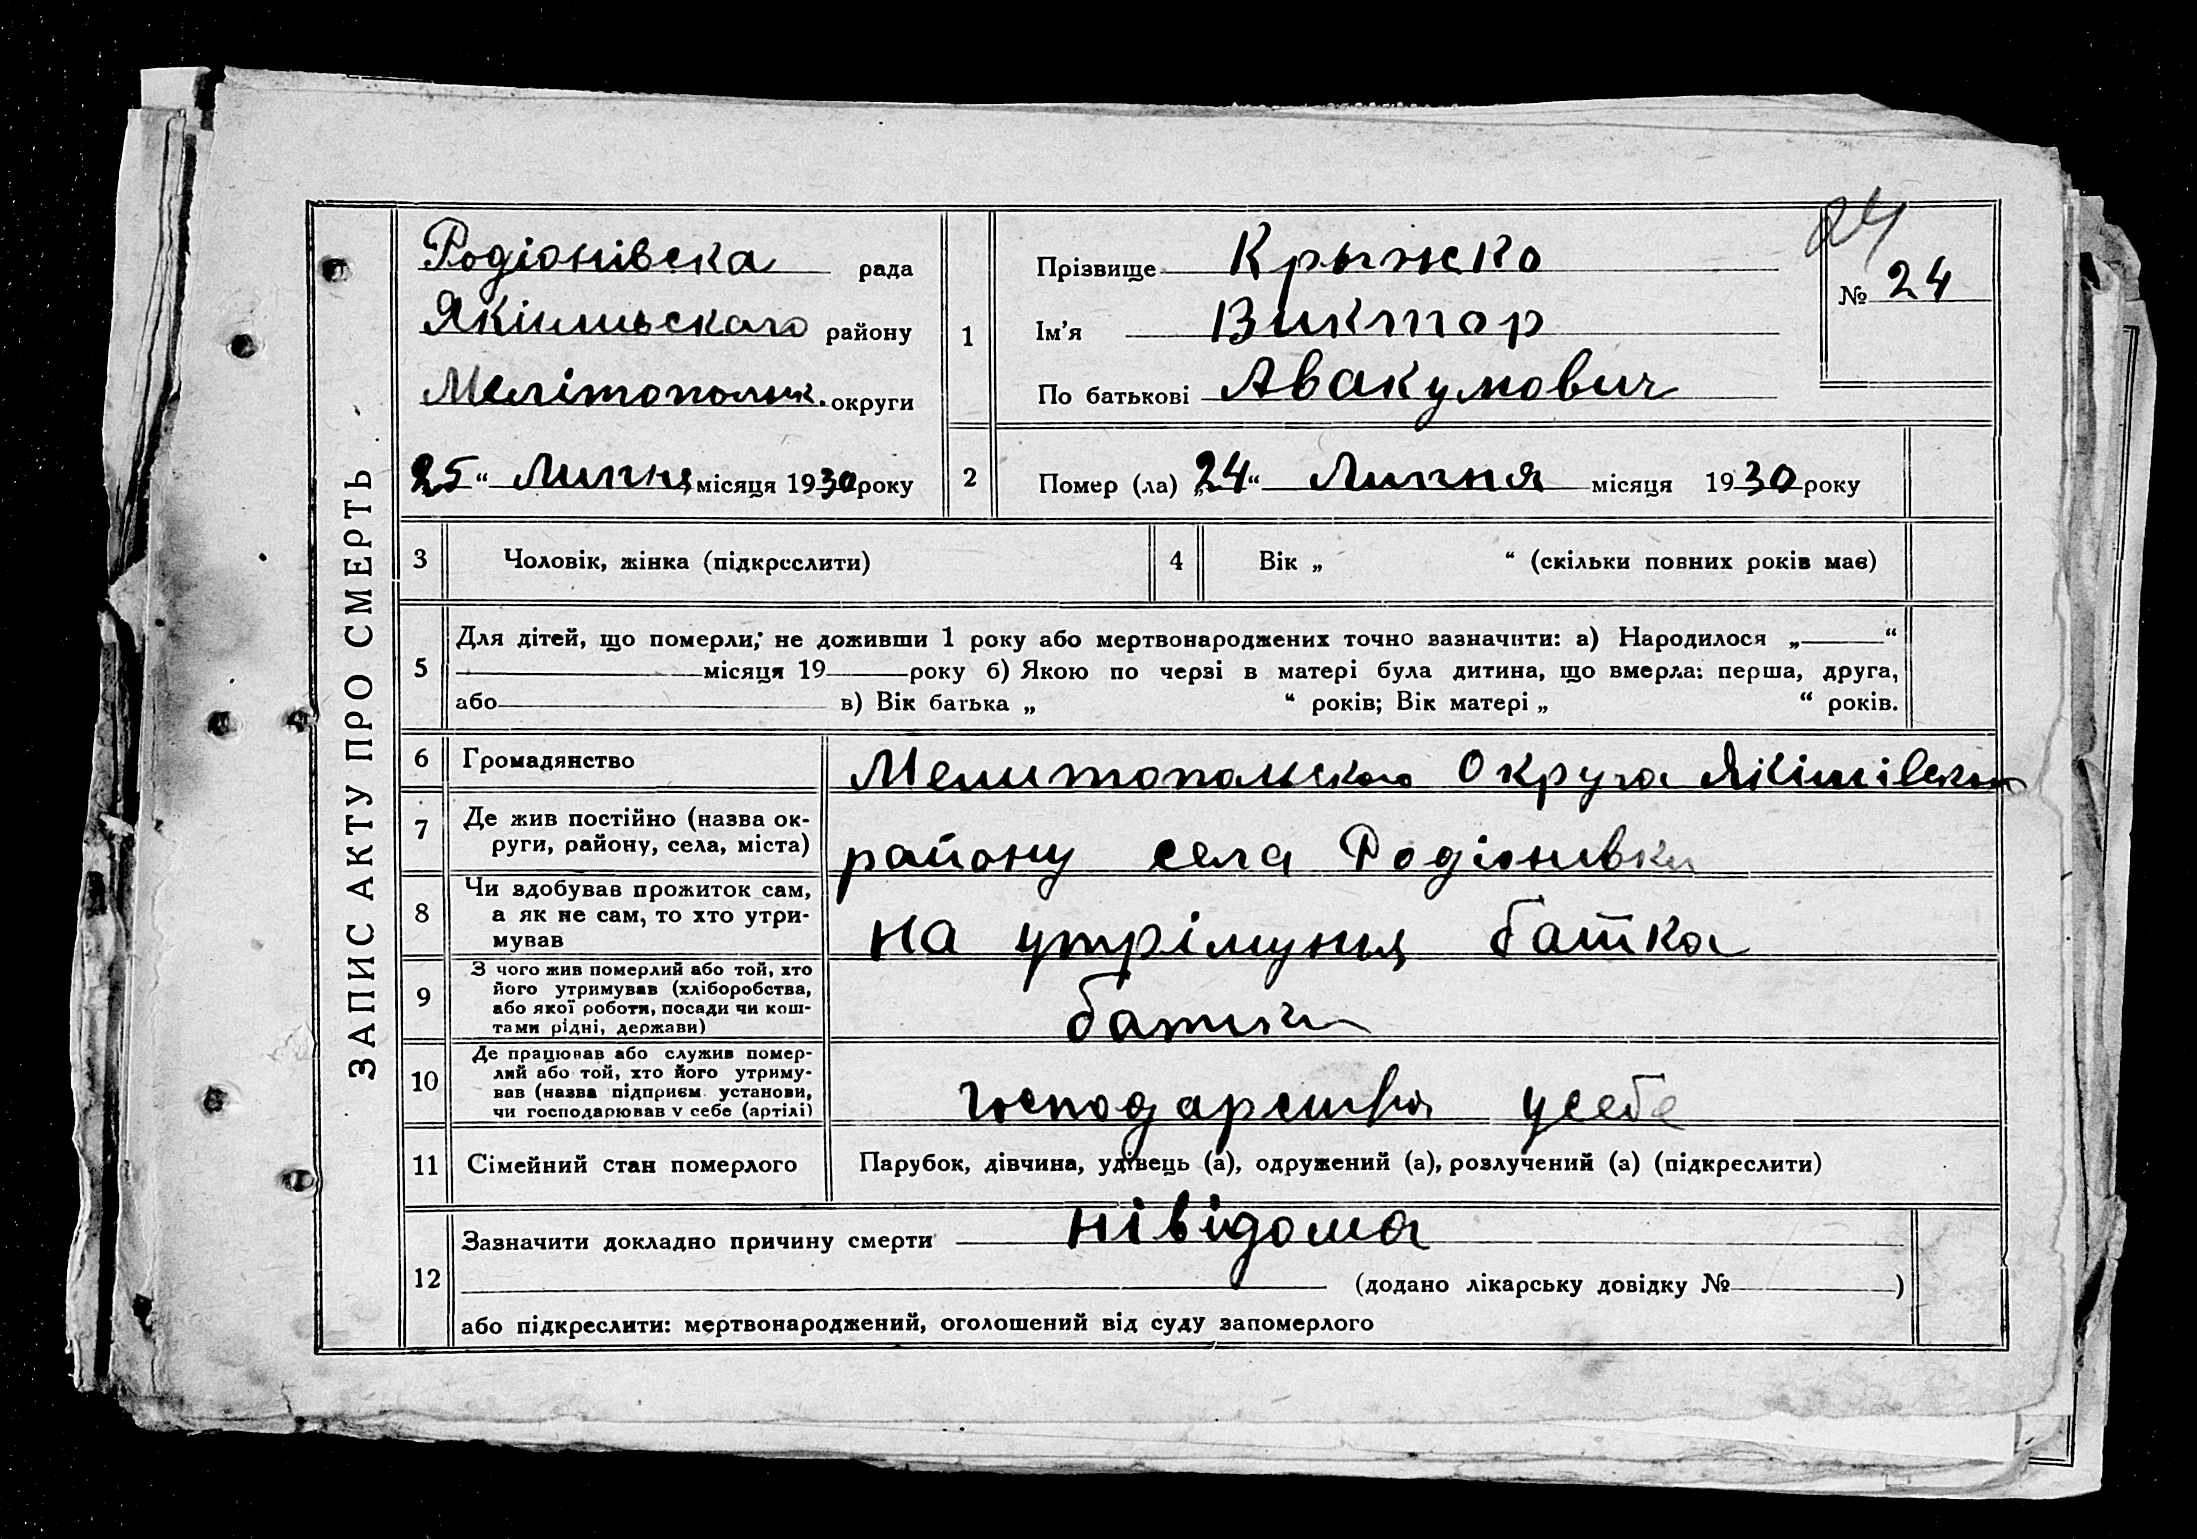 ЗАПИС АКТУ ПРО СМЕРТЬ
Родіонівска рада
Якімівскаго району
Мелітопольск. округи
25 “ Липня місяця 1930 року
24
№ 24
1
Прізвище Крыжко
Ім’я Виктор
По батькові Авакумович
2
Помер (ла) „24“ Липня місяця 1930 року
3 Чоловік, жінка (підкреслити)
4 Вік „ “ (скільки повних років має)
5
Для дітей, що померли, не доживши 1 року або мертвонароджених точно вазначити: а) Народилося „ “
місяця 19 року б) Якою по черзі в матері була дитина, що вмерла: перша, друга,
або в) Вік батька „ “ років; Вік матері „ “ років.
6 Громадянство
Мелитопольского Округа Якімівского
7 Де жив постійно (назва ок-
руги, району, села, міста)
району села Родіонивки
8
Чи здобував прожиток сам,
а як не сам, то хто утри-
мував
на утрімуння батка
9
З чого жив померлий або той, хто
його утримував (хліборобства,
або якої роботи, посади чи кош-
тами рідні, держави)
10
Де працював або служив помер-
лий або той, хто його утриму-
вав (назва підприєм. установи,
чи господарював у себе (артілі)
господарства усебе
11 Сімейний стан померлого
Парубок, дівчина, удівець (а), одружений (а), розлучений (а) (підкреслити)
12
Зазначити докладно причину смерти нівідома
(додано лікарську довідку № )
або підкреслити: мертвонароджений, оголошений від суду запомерлого